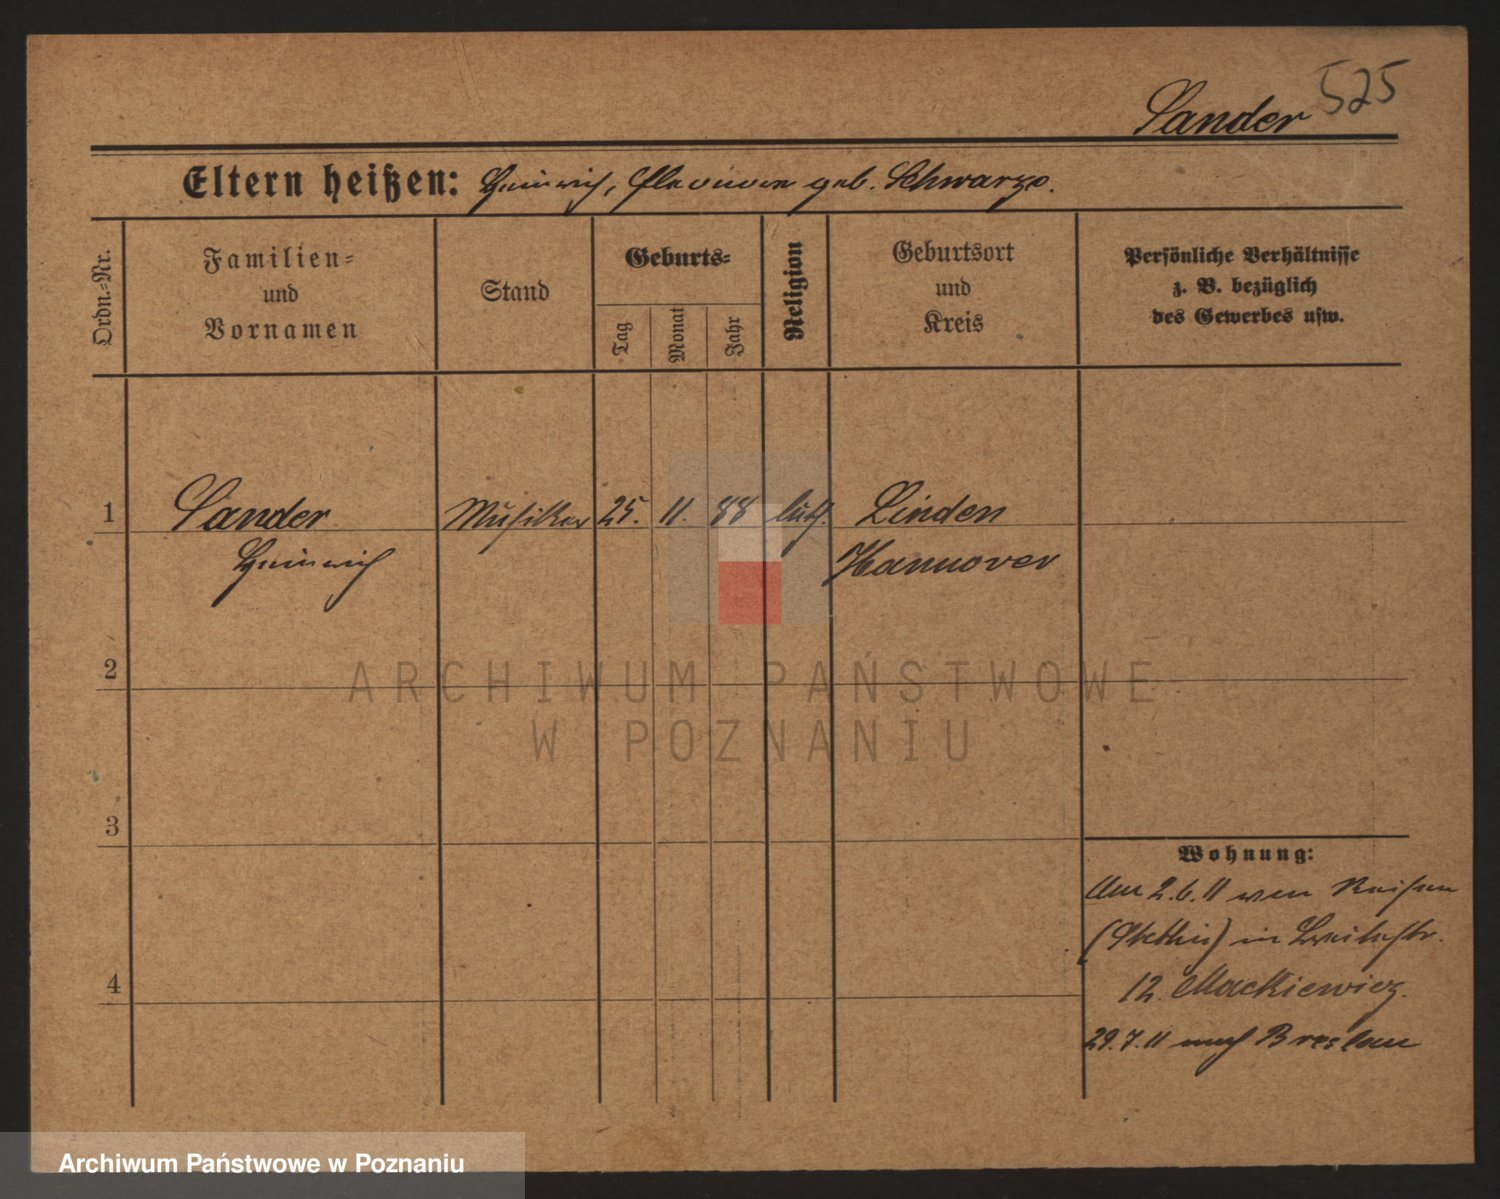 Sander 525
Eltern heißen: Heinrich, geb. Schwarze.
Ordn.-Nr.
Familien-
und
Vornamen
Stand
Geburts-
Tag
Monat
Jahr
Religion
Geburtsort
und
Kreis
Persönliche Verhältnisse
z. B. bezüglich
des Gewerbes usw.
1 Sander Musiker 25. 11. 88 luth. Linden
Heinrich Hannover
2
3
4
Wohnung:
2.6.11 von
in Breitestr.
12. Mackiewicz.
29.7.11 nach Breslau
ARCHIWUM PAŃSTWOWE
W POZNANIU
Archiwum Państwowe w Poznaniu